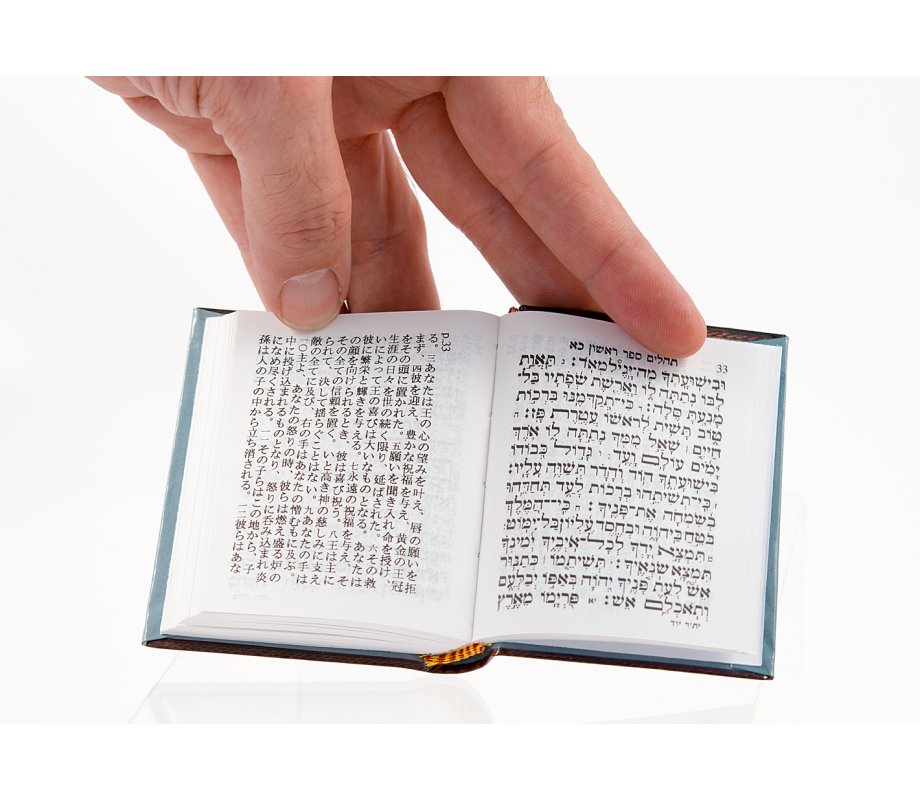 p.33
る。三あなたは王の心の望みを叶え、唇の願いを拒
まず、四彼を迎え、豊かな祝福を与え、黄金の王冠
をその頭に置かれた。五願いを聞き入れ命を授け、
生涯の日々を世の続く限り、延ばされた。六その救
いによって王の喜びは大いなものとなる。あなたは
彼に繁栄と輝きを与える、七永遠の祝福を与え、そ
の顔を向けられるとき、彼は喜び祝う。八王は主に
その全ての信頼を置く。いと高き神の慈しみに支え
られて、決して揺らぐことはない。九あなたの手は
敵の全てに及び、右の手はあなたの憎むもに及ぶ。
一〇主よ、あなたの怒りの時、彼らは燃え盛る炉の
中に投げ込まれるものとなり、怒りに呑み込まれ炎
になめ尽くされる。一一その子らはこの地から、子
孫は人の子の中から立ち消される。一二彼らはあな
33 תהלים ספר ראשון כא
וּבִישׁוּעָתְךָ מַה־יָּגֶיל מְאֹד: ג תַּאֲוַת
לִבּוֹ נָתַתָּה לּוֹ וַאֲרֶשֶׁת שְׂפָתָיו בַּל־
מָנַעְתָּ סֶּלָה: ד כִּי־תְקַדְּמֶנּוּ בִּרְכוֹת
טוֹב תָּשִׁית לְרֹאשׁוֹ עֲטֶרֶת פָּז: ה
חַיִּים שָׁאַל מִמְּךָ נָתַתָּה לּוֹ אֹרֶךְ
יָמִים עוֹלָם וָעֶד: ו גָּדוֹל כְּבוֹדוֹ
בִּישׁוּעָתֶךָ הוֹד וְהָדָר תְּשַׁוֶּה עָלָיו:
ז כִּי־תְשִׁיתֵהוּ בְרָכוֹת לָעַד תְּחַדֵּהוּ
בְשִׂמְחָה אֶת־פָּנֶיךָ: ח כִּי־הַמֶּלֶךְ
בֹּטֵחַ בַּיהוָה וּבְחֶסֶד עֶלְיוֹן בַּל־יִמּוֹט:
ט תִּמְצָא יָדְךָ לְכָל־אֹיְבֶיךָ יְמִינְךָ
תִּמְצָא שֹׂנְאֶיךָ: י תְּשִׁיתֵמוֹ כְּתַנּוּר
אֵשׁ לְעֵת פָּנֶיךָ יְהוָה בְּאַפּוֹ יְבַלְּעֵם
וְתֹאכְלֵם אֵשׁ: יא פִּרְיָמוֹ מֵאֶרֶץ
יתיר יוד